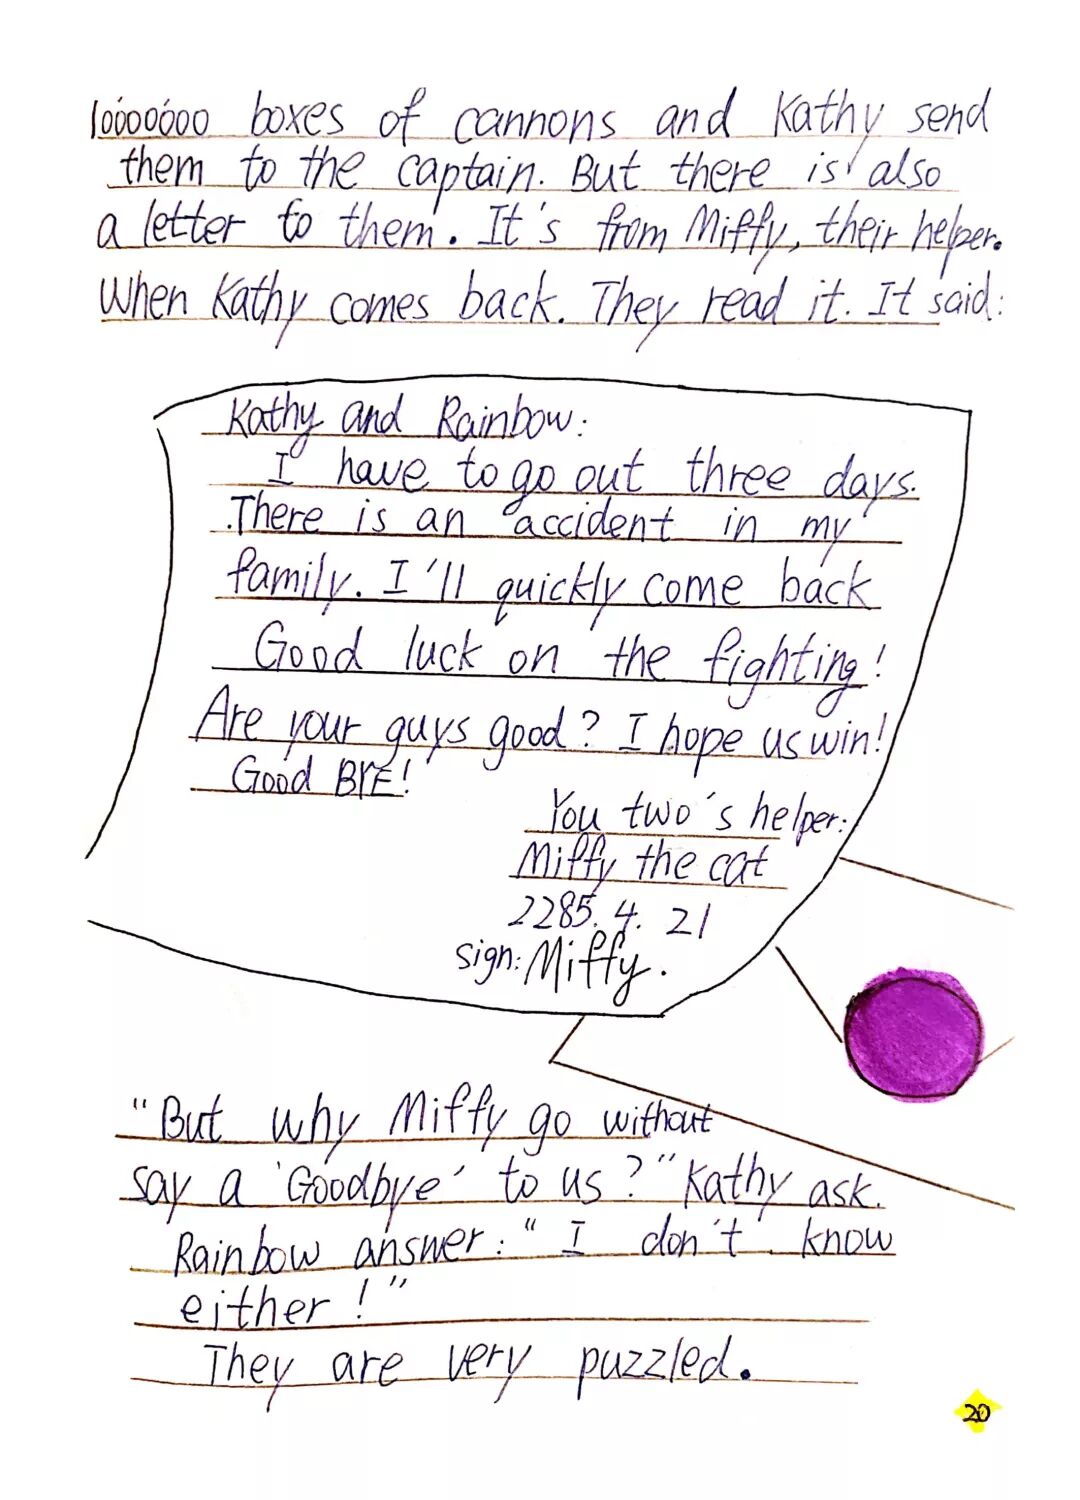 1000000 boxes of cannons and Kathy send
them to the captain. But there is also
a letter to them. It's from Miffy, their helper.
When Kathy comes back. They read it. It said:
Kathy and Rainbow:
I have to go out three days.
There is an accident in my
family. I'll quickly come back
Good luck on the fighting!
Are your guys good? I hope us win!
Good BYE!
You two's helper:
Miffy the cat
2285. 4. 21
sign: Miffy.
"But why Miffy go without
say a 'Goodbye' to us?" Kathy ask.
Rainbow answer: "I don't know
either!"
They are very puzzled.
20